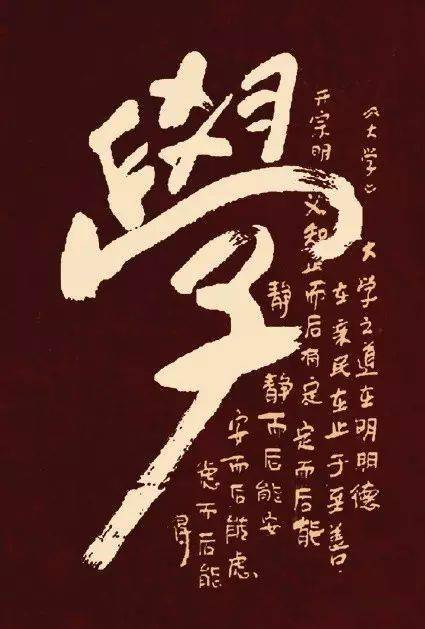 學
《大学》 大学之道在明明德
在亲民在止于至善.
开宗明义知止而后有定 定而后能
静 静而后能安
安而后能虑
虑而后能
得